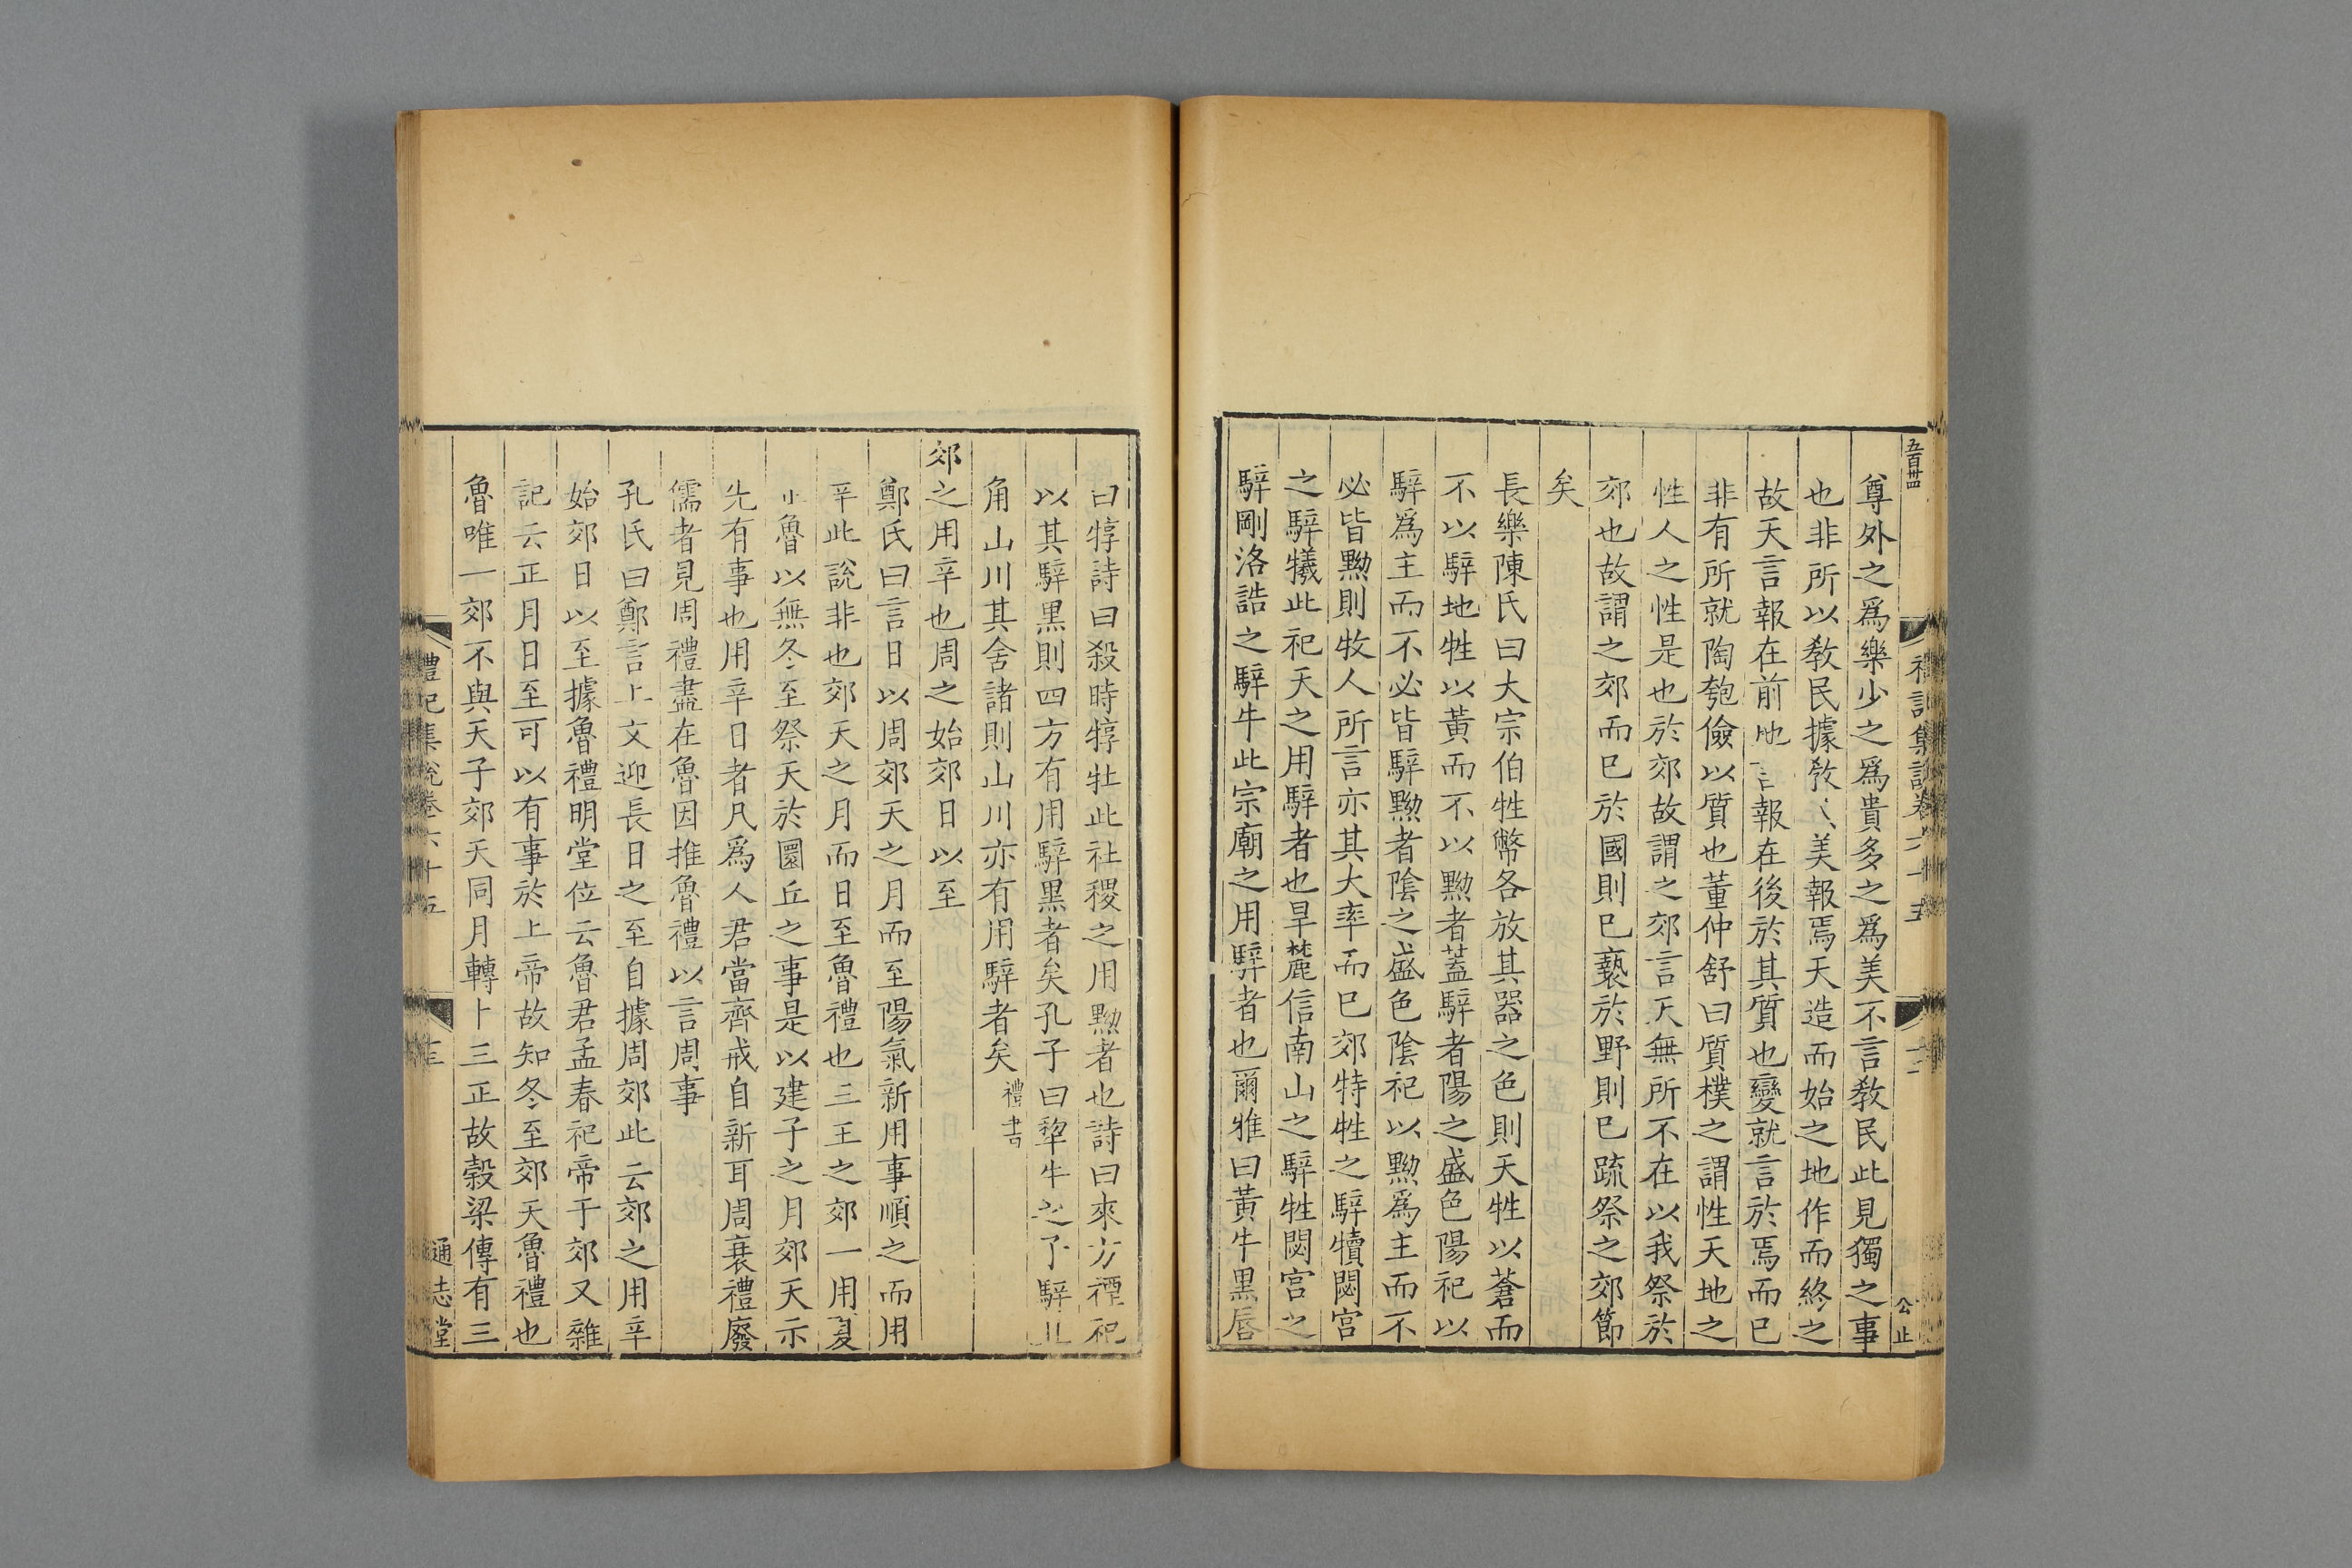 五百卌四
禮記集說卷六十五
十二
公止
尊外之爲樂少之爲貴多之爲美不言教民此見獨之事
也非所以教民據教美報焉天造而始之地作而終之
故天言報在前地言報在後於其質也變就言於焉而已
非有所就陶匏儉以質也董仲舒曰質樸之謂性天地之
性人之性是也於郊故謂之郊言天無所不在以我祭於
郊也故謂之郊而已於國則已褻於野則已疏祭之郊節
矣
長樂陳氏曰大宗伯牲幣各放其器之色則天牲以蒼而
不以騂地牲以黃而不以黝者蓋騂者陽之盛色陽祀以
騂爲主而不必皆騂黝者隂之盛色隂祀以黝爲主而不
必皆黝則牧人所言亦其大率而已郊特牲之騂犢閟宮
之騂犧此祀天之用騂者也旱麓信南山之騂牲閟宮之
騂剛洛誥之騂牛此宗廟之用騂者也爾雅曰黃牛黑脣
曰犉詩曰殺時犉牡此社稷之用黝者也詩曰來方禋祀
以其騂黑則四方有用騂黑者矣孔子曰犂牛之子騂且
角山川其舍諸則山川亦有用騂者矣禮書
郊之用辛也周之始郊日以至
鄭氏曰言日以周郊天之月而至陽氣新用事順之而用
辛此說非也郊天之月而日至魯禮也三王之郊一用夏
正魯以無冬至祭天於圜丘之事是以建子之月郊天示
先有事也用辛日者凡爲人君當齊戒自新耳周衰禮廢
儒者見周禮盡在魯因推魯禮以言周事
孔氏曰鄭言上文迎長日之至自據周郊此云郊之用辛
始郊日以至據魯禮明堂位云魯君孟春祀帝于郊又雜
記云正月日至可以有事於上帝故知冬至郊天魯禮也
魯唯一郊不與天子郊天同月轉卜三正故穀梁傳有三
禮記集說卷六十五
十三
通志堂